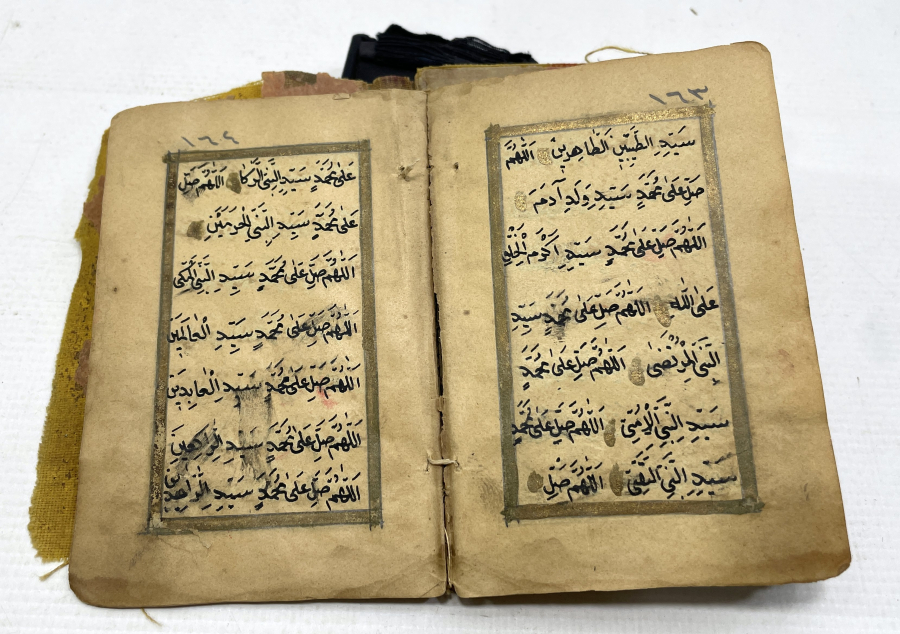 ١٦٣
سَيِّدِ الطَّيِّبِيْنَ الطَّاهِرِيْنَ اَللّٰهُمَّ
صَلِّ عَلٰى مُحَمَّدٍ سَيِّدِ وَلَدِ آدَمَ
اَللّٰهُمَّ صَلِّ عَلٰى مُحَمَّدٍ سَيِّدِ اَكْرَمِ الْخَلْقِ
عَلَى اللّٰهِ اَللّٰهُمَّ صَلِّ عَلٰى مُحَمَّدٍ سَيِّدِ
النَّبِيِّ الْمُرْتَضٰى اَللّٰهُمَّ صَلِّ عَلٰى مُحَمَّدٍ
سَيِّدِ النَّبِيِّ الْاُمِّيِّ اَللّٰهُمَّ صَلِّ عَلٰى مُحَمَّدٍ
سَيِّدِ النَّبِيِّ التَّقِيِّ اَللّٰهُمَّ صَلِّ
١٦٤
عَلٰى مُحَمَّدٍ سَيِّدِ النَّبِيِّ اَللّٰهُمَّ صَلِّ
عَلٰى مُحَمَّدٍ سَيِّدِ النَّبِيِّ الْحَرَمَيْنِ
اَللّٰهُمَّ صَلِّ عَلٰى مُحَمَّدٍ سَيِّدِ النَّبِيِّ الْمَكِّي
اَللّٰهُمَّ صَلِّ عَلٰى مُحَمَّدٍ سَيِّدِ الْعَالَمِيْنَ
اَللّٰهُمَّ صَلِّ عَلٰى مُحَمَّدٍ سَيِّدِ الْعَابِدِيْنَ
اَللّٰهُمَّ صَلِّ عَلٰى مُحَمَّدٍ سَيِّدِ
اَللّٰهُمَّ صَلِّ عَلٰى مُحَمَّدٍ سَيِّدِ الزَّاهِدِيْنَ